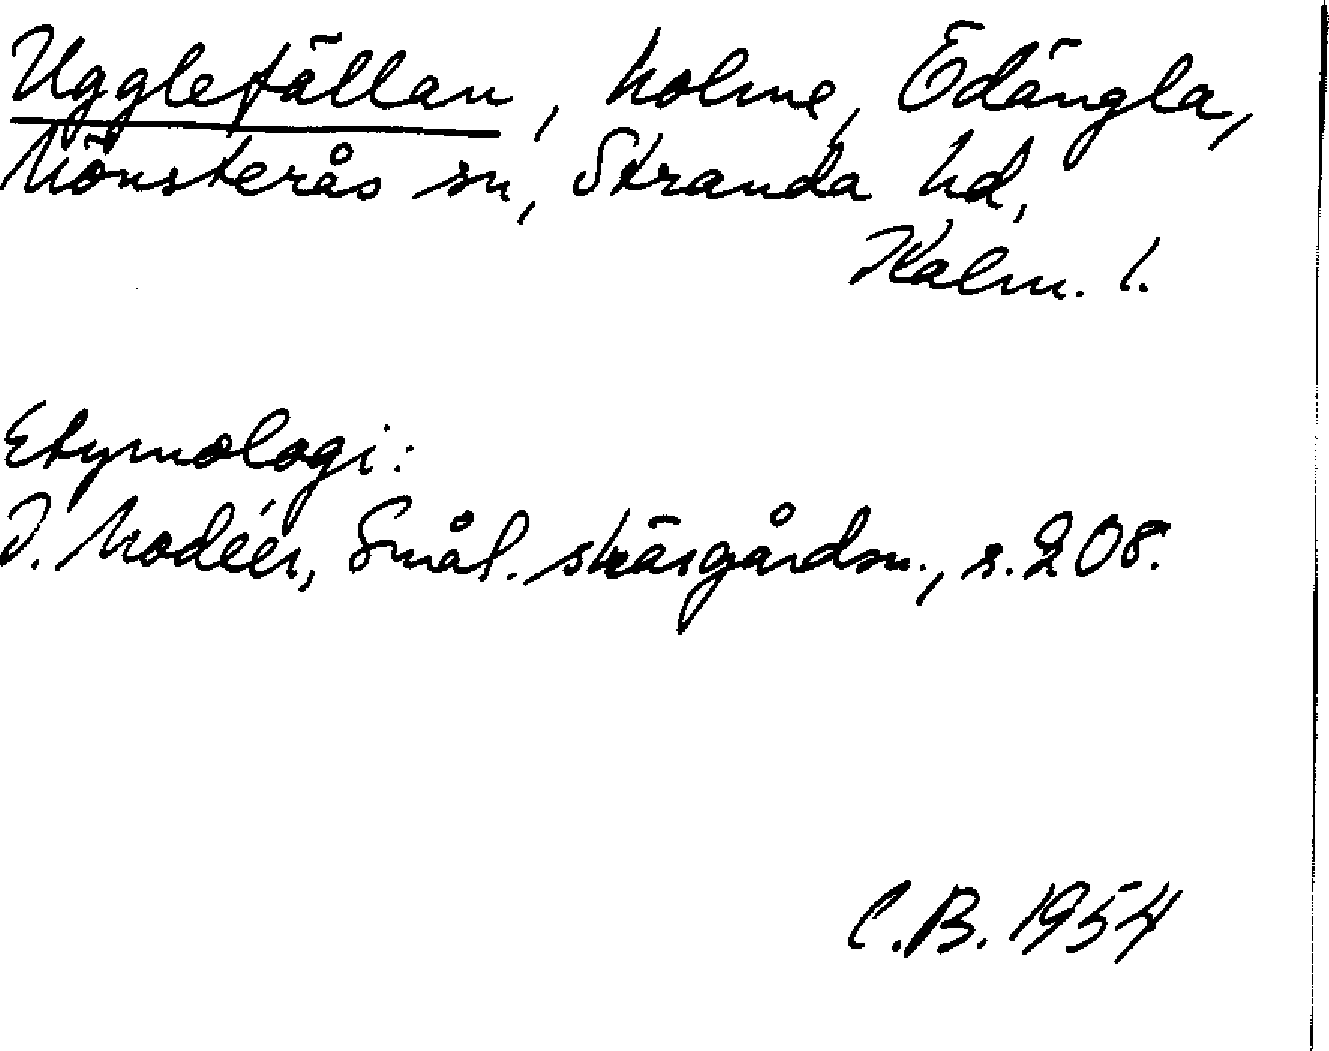 Ugglefällan, holme, Ödängla,
Mönsterås sn, Stranda hd,
Kalm. l.
Etymologi:
I. Modéer, Smål. skärgårdsn., s. 208.
C.B. 1954